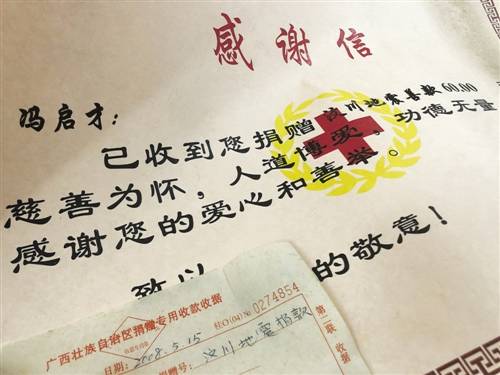 感谢信
冯启才：
已收到您捐赠汶川地震善款60.00
慈善为怀，人道博爱，功德无量
感谢您的爱心和善举。
致以 的敬意！
广西壮族自治区捐赠专用收款收据
2008.5.15 桂O(04)№0274854
捐赠号： 汶川地震捐款
第二联 收据